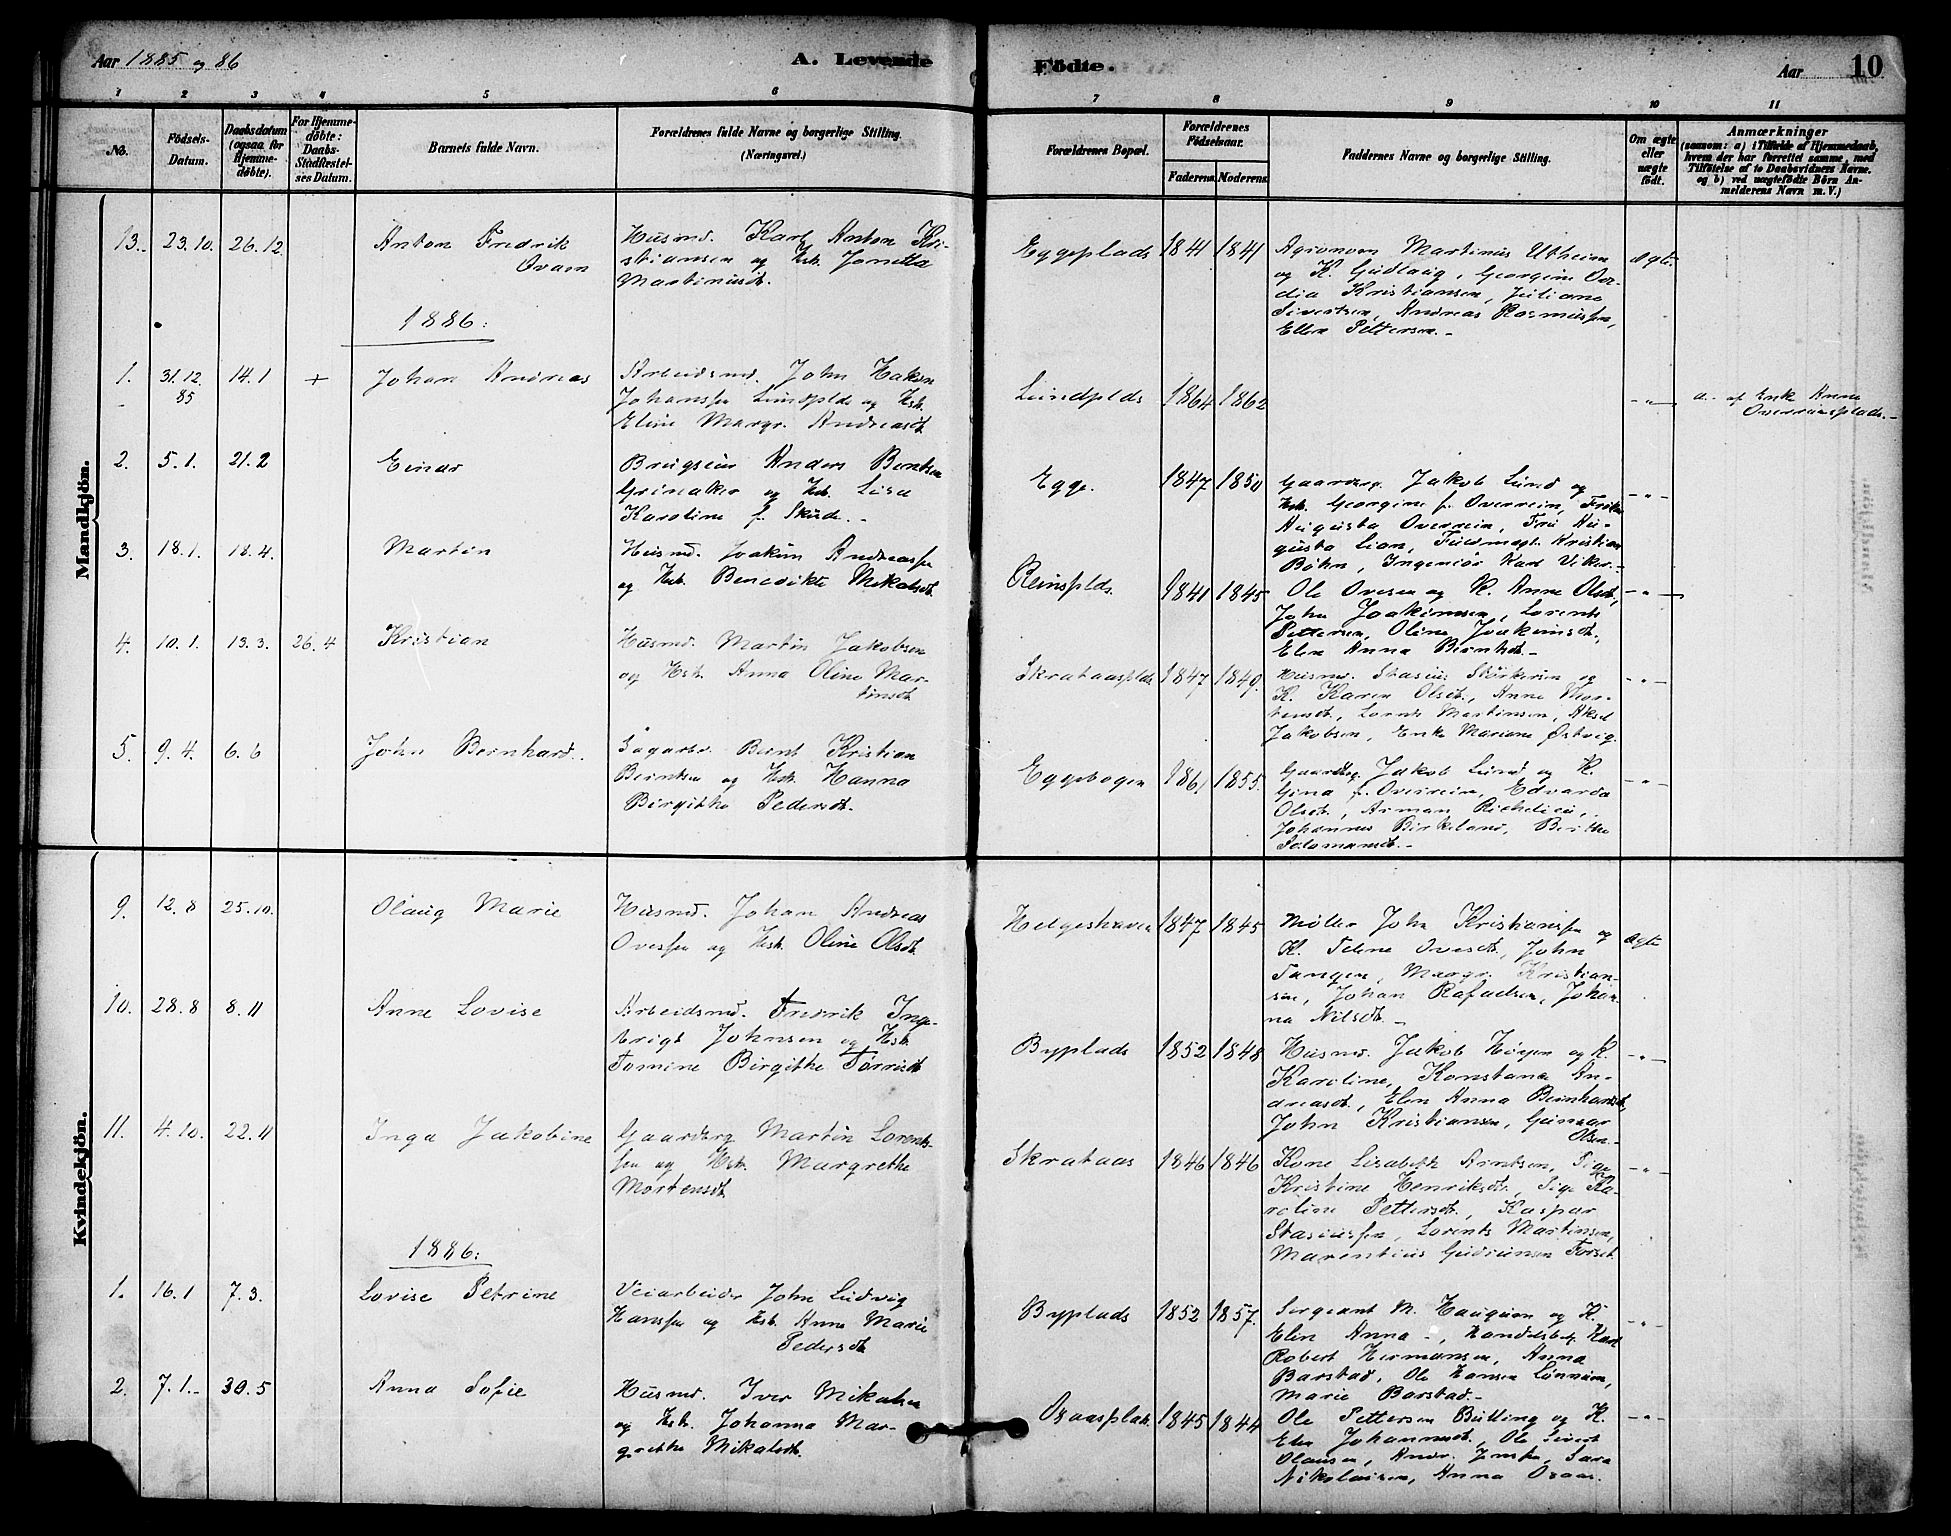 Aar 1885 og 86
A. Levende
Födte.
Aar
10
1 2 3 4 5 6 7 8 9 10 11
No.
Födsels-
Datum.
Daabsdatum
(ogsaa for
Hjemme-
döbte).
For Hjemme-
döbte:
Daabs-
Stadfæstel-
ses Datum.
Barnets fulde Navn.
Forældrenes fulde Navne og borgerlige Stilling.
(Næringsvei.)
Forældrenes Bopæl.
Forældrenes
Födselsaar.
Faderens. Moderens.
Faddernes Navne og borgerlige Stilling.
Om ægte
eller
uægte
födt.
Anmærkninger
(saasom: a) i Tilfælde af Hjemmedaab,
hvem der har forrettet samme, med
Tilföielse af to Daabsvidners Navne.
og b) ved uægtefödte Börn An-
melderens Navn m. V.)
Mandkjön.
13. 23.10. 26.12.
Anton Fredrik
Husmd. Karl Anton Kri-
stiansen og Hst. Jonetta
Martinusdt.
Eggeplads 1841 1841
Agronom Martinus Utheim
og K. Gudlaug, Georgine Ove-
dia Kristiansen, Juliane
Sivertsen, Andreas Rasmussen,
Ellen Pettersen.
ægte.
1886:
1. 31.12. 14.1 +
85
Johan Andreas
Arbeidsmd. John Hakon
Johanssen Lundplds og Hst.
Eline Margr. Andreasdt.
Lundplds 1864 1862
-"-
a. af Enk Anna
Overreinsplads.
2. 5.1. 21.2
Einar
Brugseier Anders Berntsen
Grinaker og Hst. Lisa
Karoline f. Skude.
Egge. 1847 1850
Gaardbrg. Jakob Lund og
Hst. Georgine f. Overrein, Frøken
Augusta Overrein, Fru Au-
gusta Lian, Fuldmægt. Kristian
Bøhn, Ingeniør Karl Viker.
-"-
3. 18.1. 18.4.
Martin
Husmd. Joakim Andreassen
og Hst. Benedikte Mikalsdt.
Reinsplds. 1841 1845
Ole Ovesen og K. Anne Olsdt,
John Joakimsen, Lorents
Pettersen, Oline Joakimsdt.
Elen Anna Berntsdt.
-"-
4. 10.1. 13.3. 26.4
Kristian
Husmd. Martin Jakobsen
og Hst. Anna Oline Mar-
tinsdt.
Skrataasplds 1847 1849.
Husmd. Stasius Størkersen og
K. Karen Olsdt., Anne Mor-
tensdt., Lornts Martinsen, Aksel
Jakobsen, Enke Mariane Østvig.
-"-
5. 9.4. 6.6
John Bernhard.
Sagarbr. Bernt Kristian
Berntsen og Hst. Hanna
Birgithe Pedersdt.
Eggebogen 1861 1855.
Gaardbrg. Jakob Lund og K.
Gina f. Overrein, Edvarda
Olsdt., Arman Richelieu,
Johannes Birkeland, Berthe
Salamonsdt.
-"-
Kvindekjön.
9. 12.8 25.10.
Olaug Marie
Husmd. Johan Andreas
Ovessen og Hst. Oline Olsdt.
Helgeshaven 1847 1845
Møller John Kristianssen og
K. Teline Ovesdt, John
Tangen, Margr. Kristian-
sen, Johan Rafaelsen, Johan-
na Nilsdt.
Ægte
10. 28.8 8.11
Anne Lovise
Arbeidsmd. Fredrik Inge-
brigt Johnsen og Hst.
Tomine Birgithe Torrisdt
Byplads 1852 1848
Husmd. Jakob Høyem og K.
Karoline, Konstance An-
dreasdt., Elen Anna Bernhardsdt,
John Kristiansen, Gunnar
Olsen.
-"-
11. 4.10. 22.11
Inga Jakobine
Gaardbrg Martin Lorents-
sen og Hst. Margrethe
Mortensdt.
Skrataas 1846 1846
Kone Lisabeth Arntsen, Pige
Kristine Henriksdt., Pige Ka-
roline Pettersdt., Kaspar
Stasiussen, Lorents Martinsen,
Marentius Gudmunsen Forset.
-"-
1886:
1. 16.1 7.3.
Lovise Petrine
Veiarbeider John Ludvig
Hanssen og Hst. Anne Marie
Pedersdt
Byplads 1852 1857.
Sergeant M. Haugum og K.
Elen Anna, Handelsbetj. Karl
Robert Hermansen, Anna
Barstad, Ole Hansen Lønnum,
Marie Barstad.
-"-
2. 7.1. 30.5
Anna Sofie
Husmd. Iver Mikalsen
og Hst. Johanna Mar-
grethe Mikalsdt.
Oxaasplads 1845 1844
Ole Pettersen Bulling og K.
Elen Johannesdt., Ole Sivert
Olausen, Andr. Jensen, Sara
Nikolaisen, Anna Oxaas.
-"-